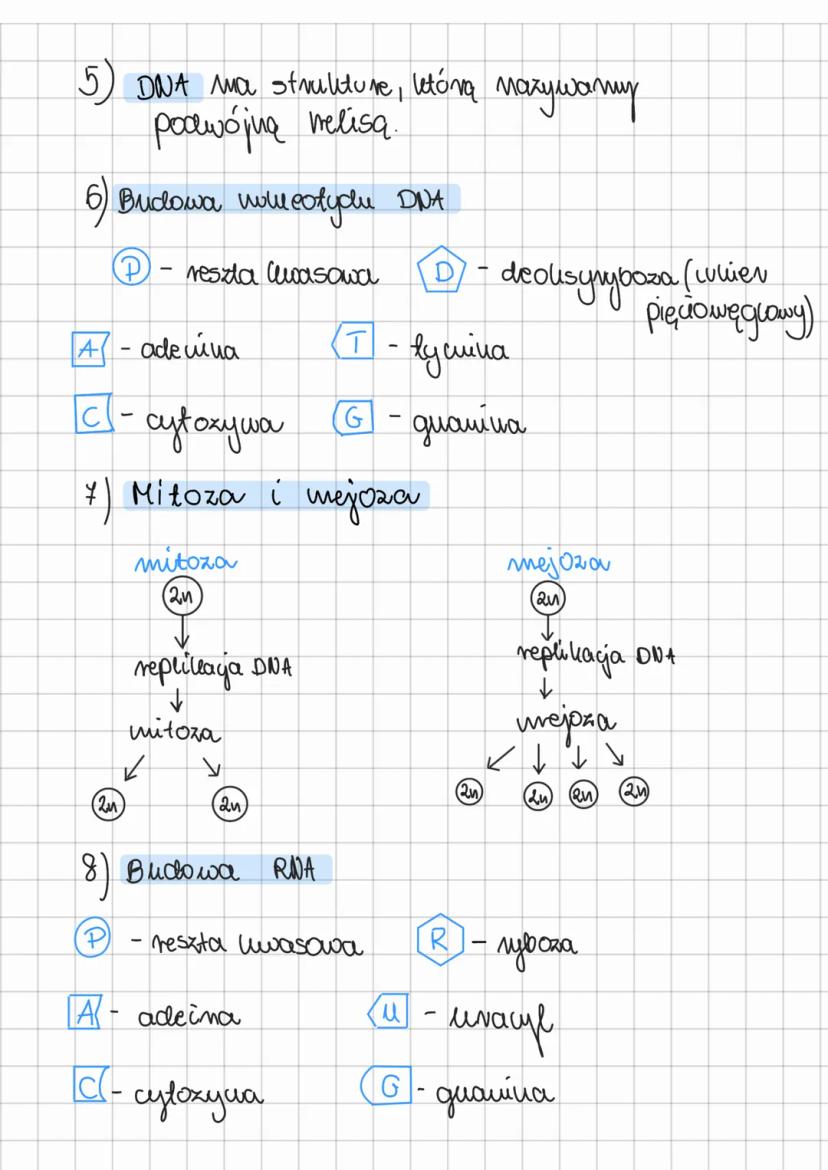 5) DNA ma strukture, którą nazywamy
podwójną helisą.
6) Budowa nukleotydu DNA
P - reszta kwasowa D - deoksyryboza (cukier
pięciowęglowy)
A - adenina T - tymina
C - cytozyna G - guanina
7) Mitoza i mejoza
mitoza mejoza
2n 2n
replikacja DNA replikacja DNA
mitoza mejoza
2n 2n 2n 2n 2n 2n
8) Budowa RNA
P - reszta kwasowa R - ryboza
A - adeina U - uracyl
C - cytozyna G - guanina